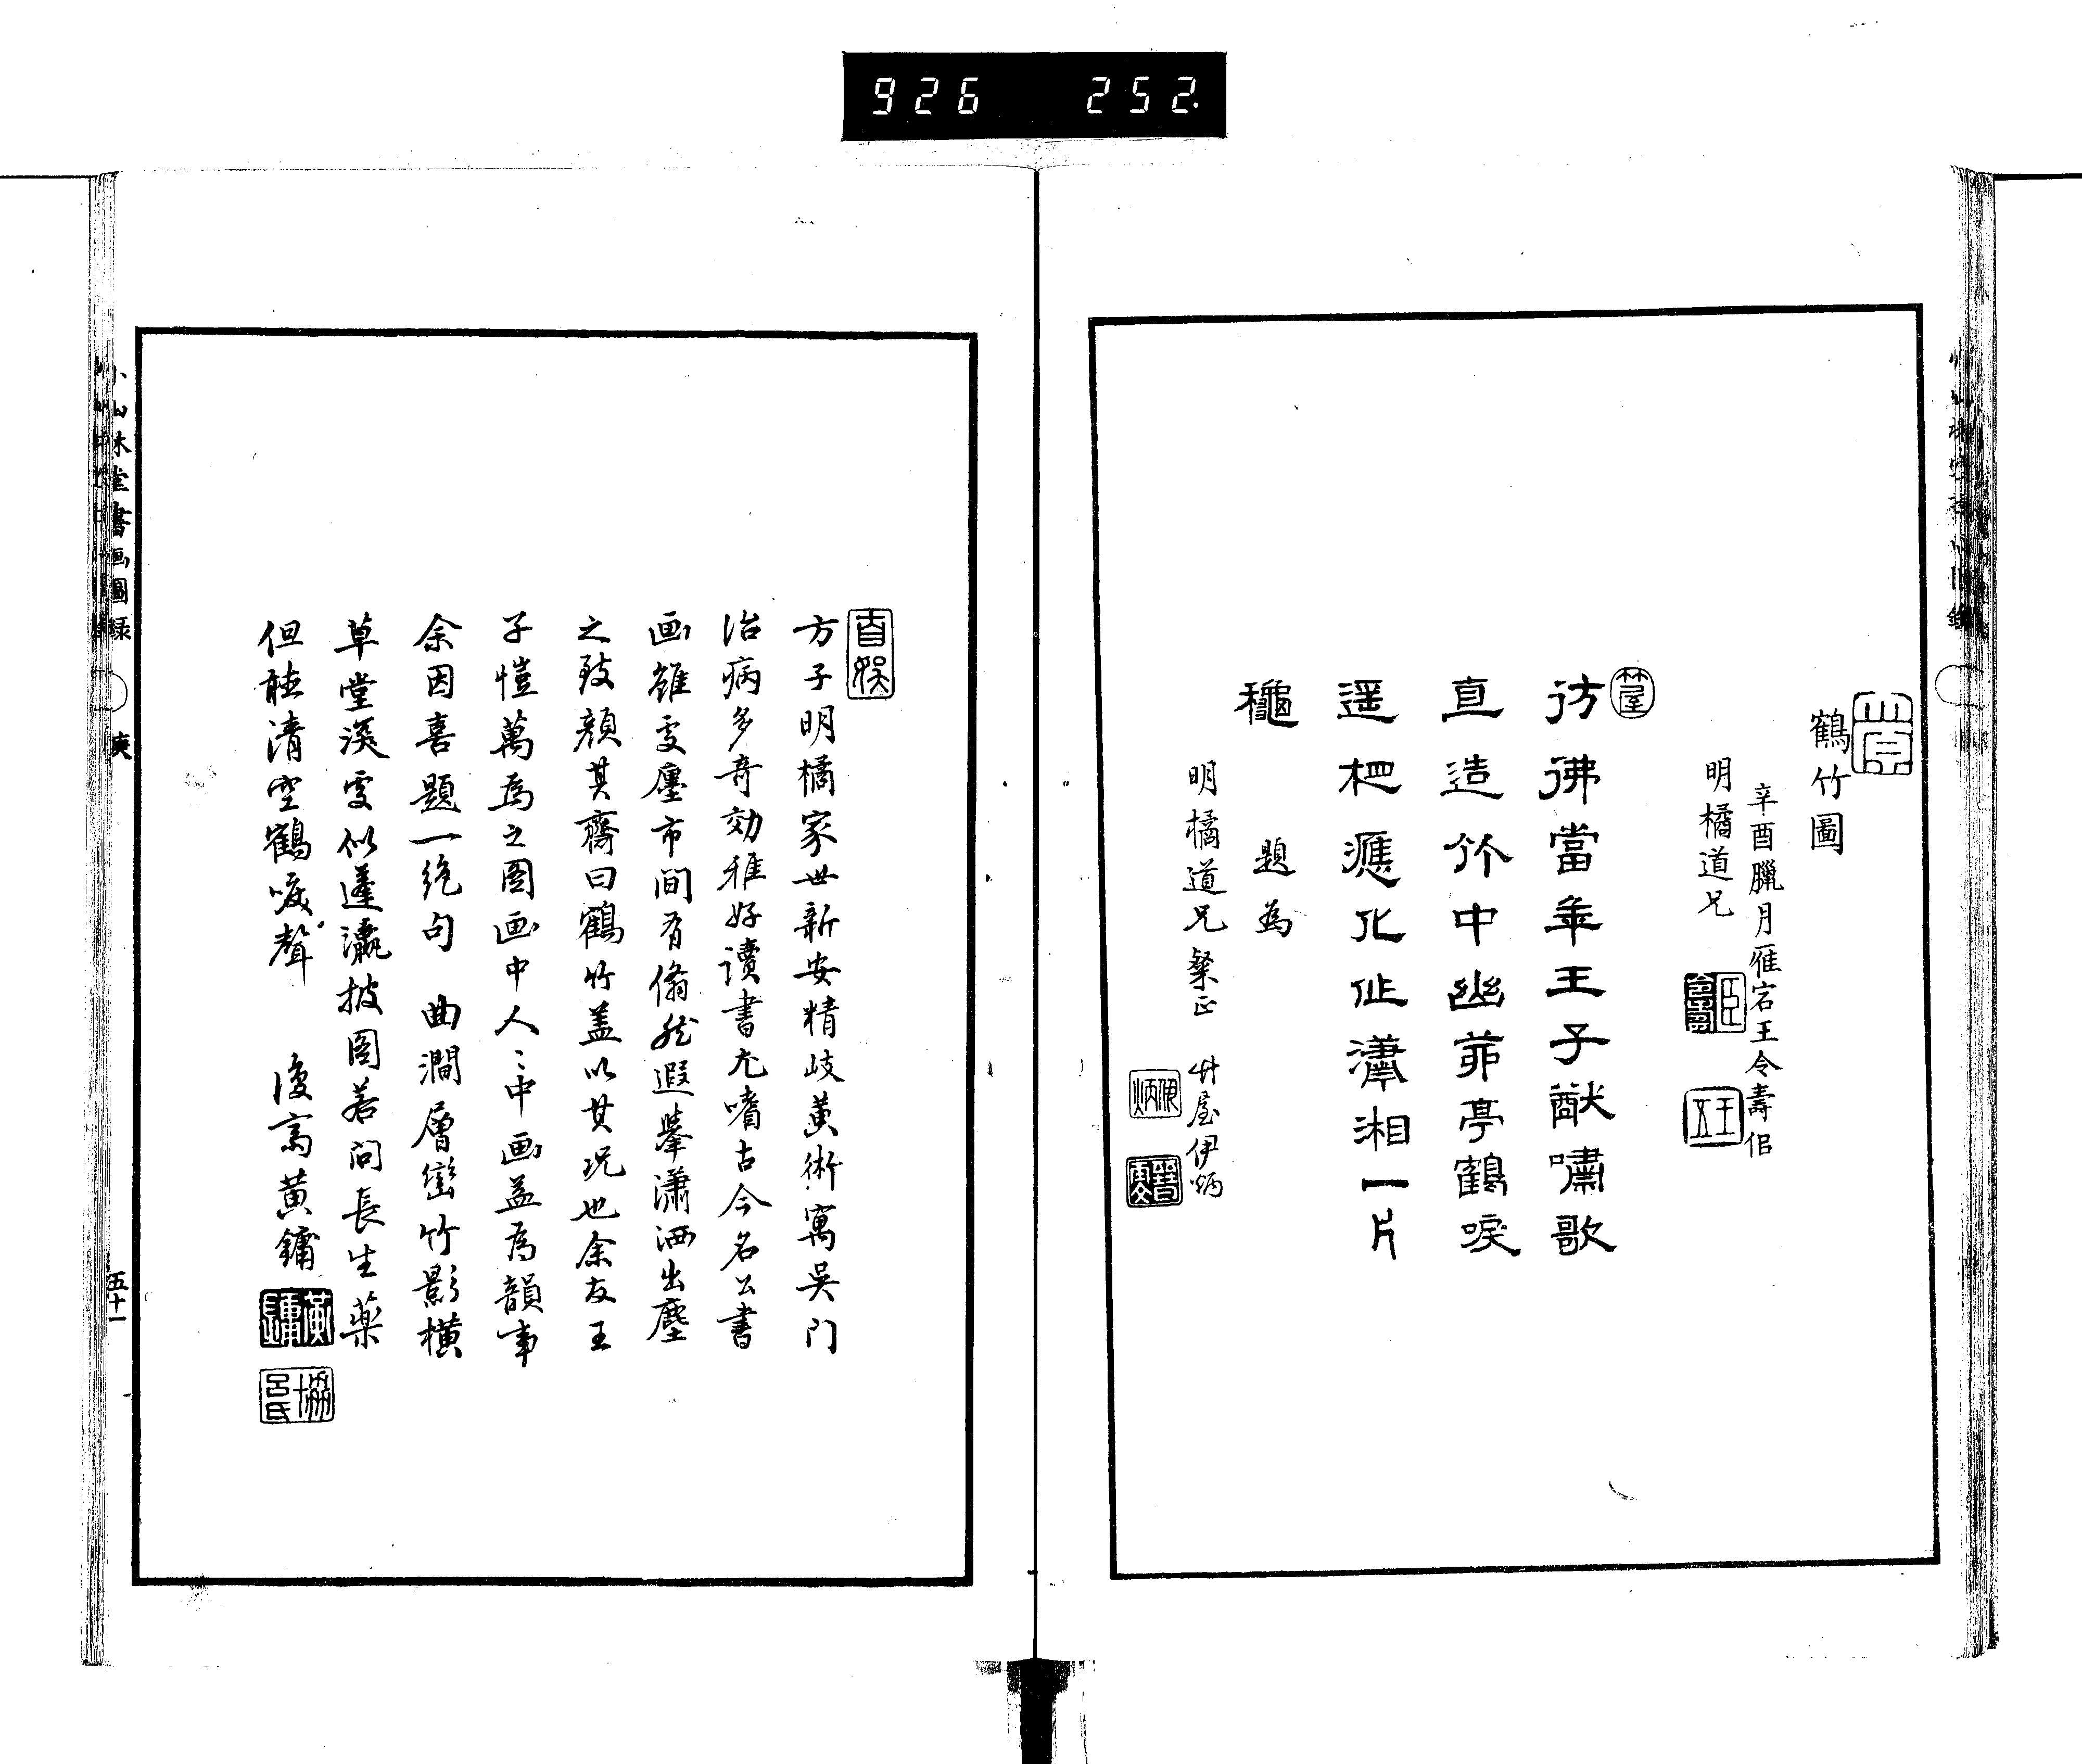 926 252.
鶴竹圖
辛酉臘月雁宕王令壽佀
明橘道兄
竹屋
彷彿當年王子猷嘯歌
直造竹中幽茆亭鶴唳
遥杷應化作瀟湘一片
龝
題為
明橘道兄粲正 竹屋伊炳
方子明橘家世新安精岐黃術寓吳门
治病多奇効雅好讀書尤嗜古今名公書
画雖䖏廛市间有翛然遐舉瀟洒出塵
之致顏其齋曰鶴竹盖以其况也余友王
子愷萬為之图画中人〻中画益為韻事
余因喜題一絶句 曲澗層巒竹影橫
草堂深䖏似蓬瀛披图若问長生藥
但聴清空鶴唳聲 復高黄鏞
黄鏞
小山林堂書画圖録
庚
五十一